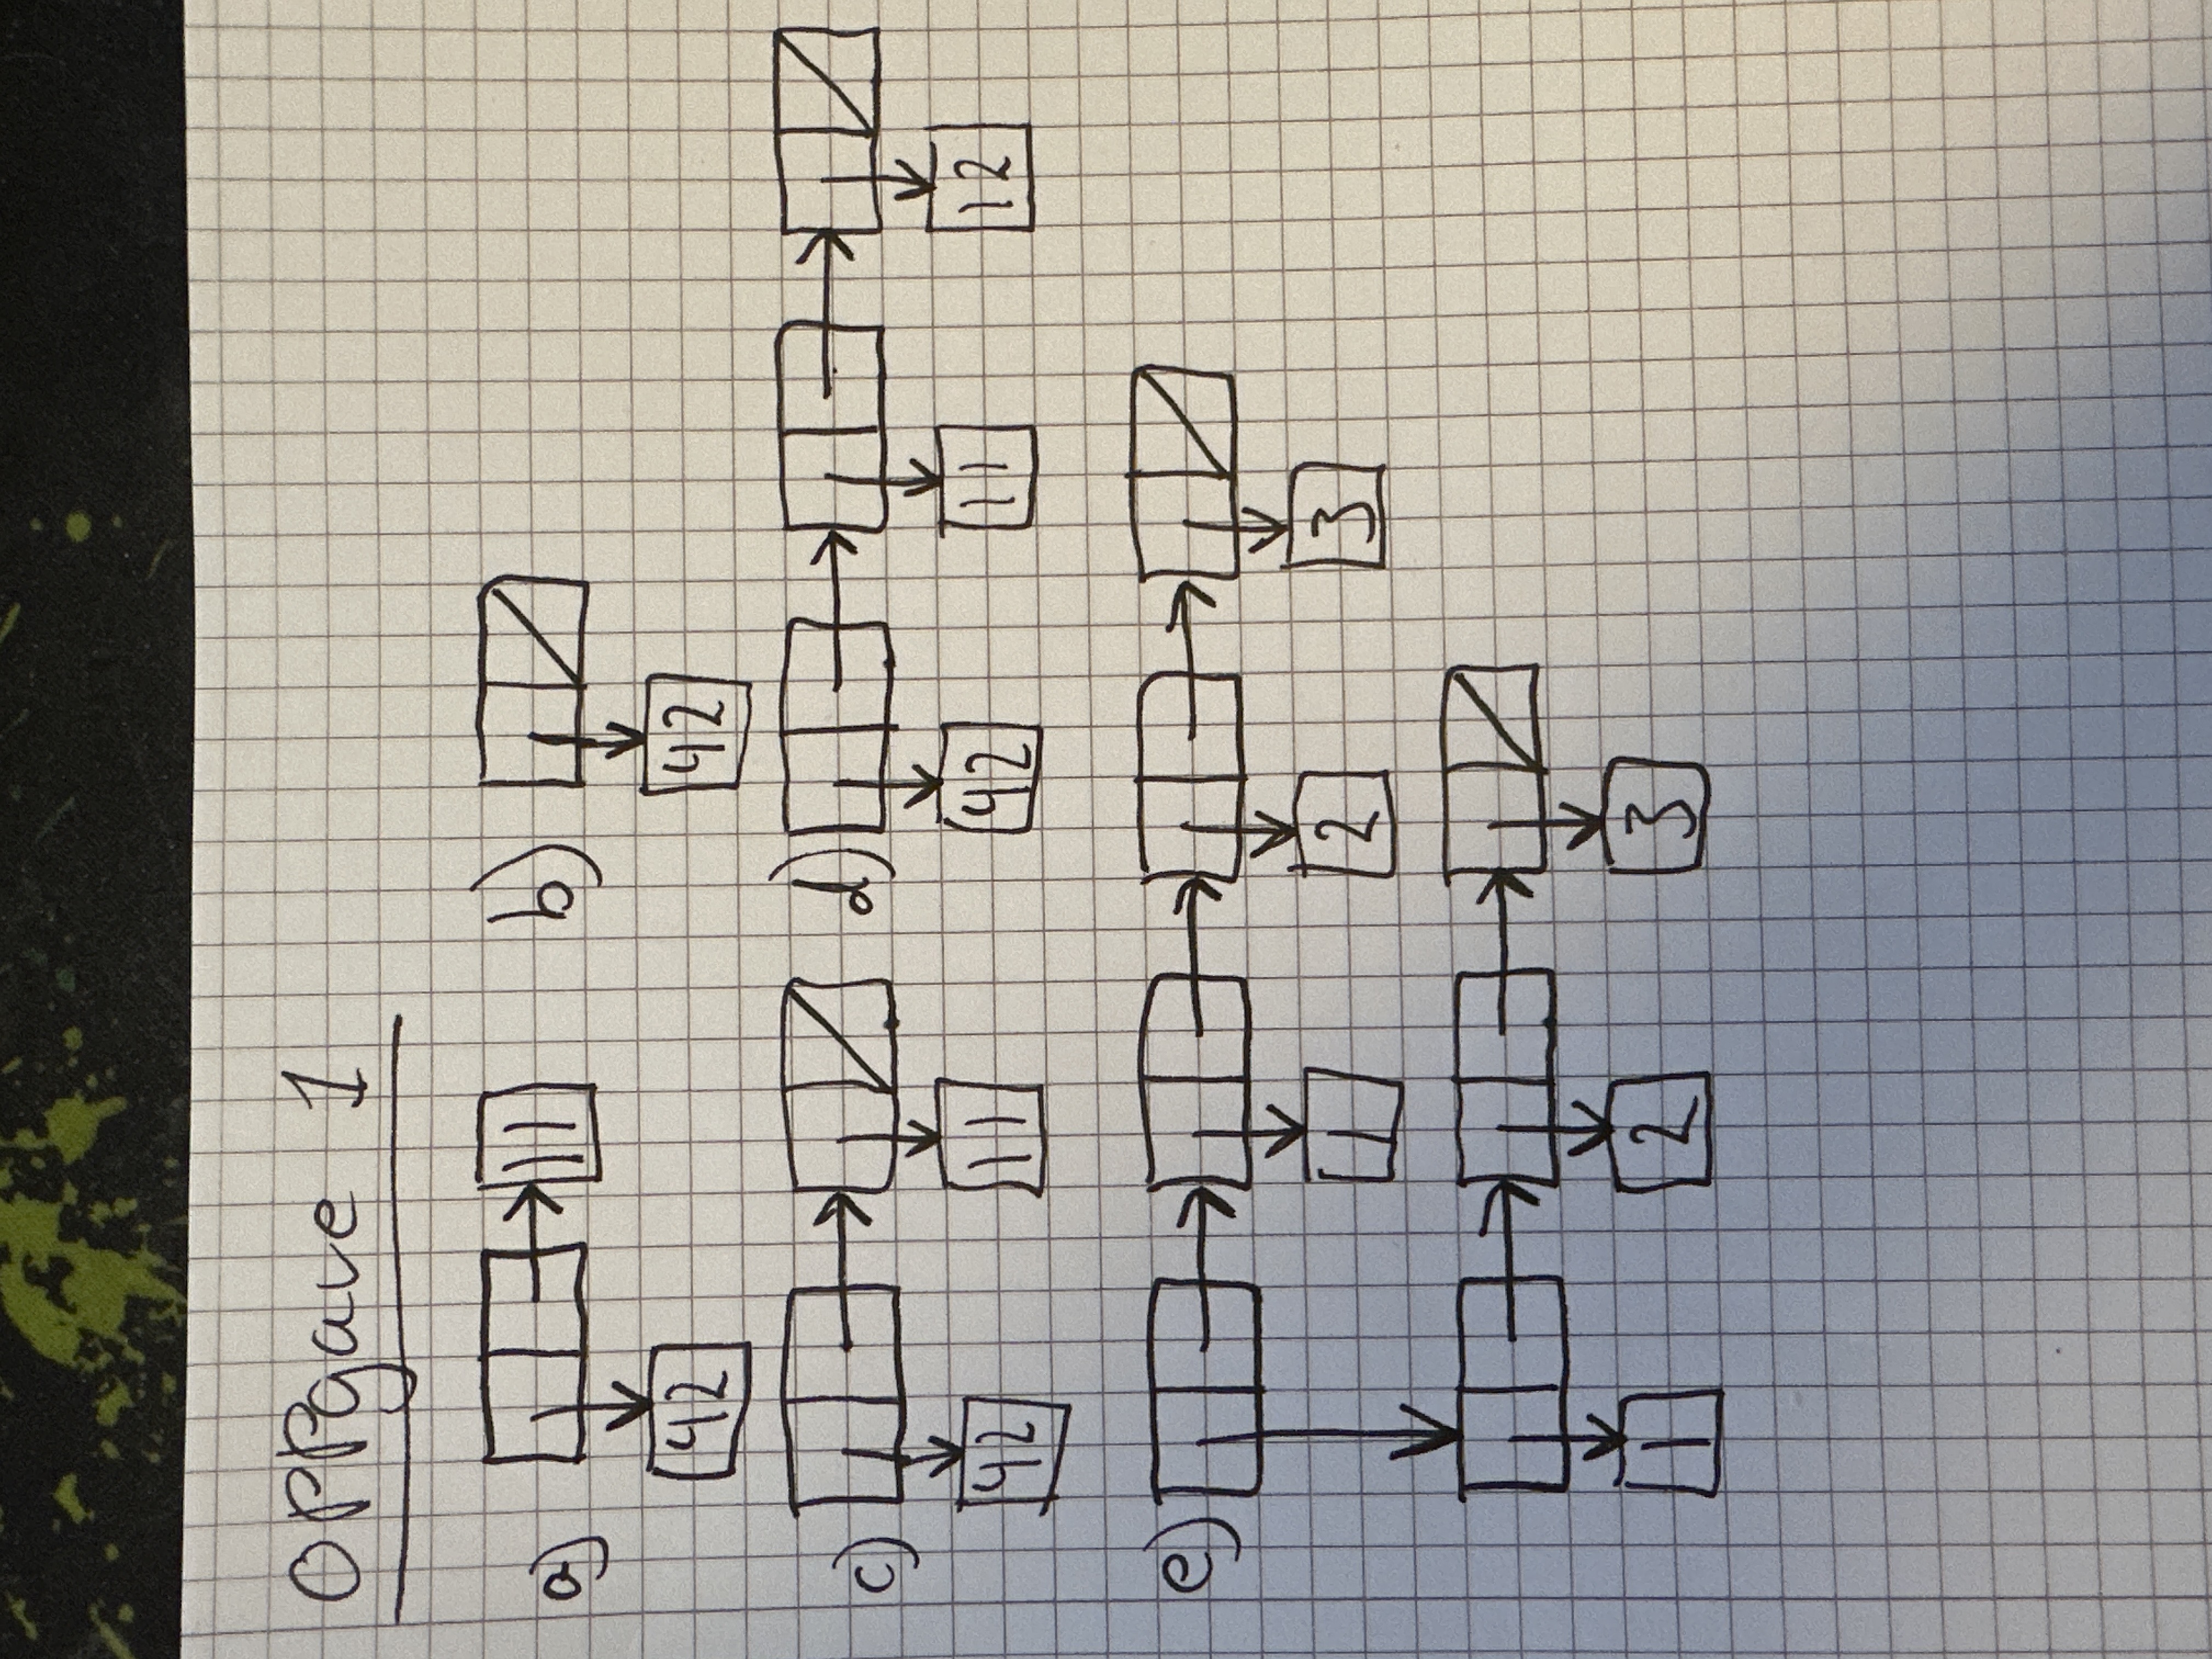 Oppgave 1
a) 11 b)
42 42
c) d)
42 11 42 11 12
e)
1 2 3
1 2 3